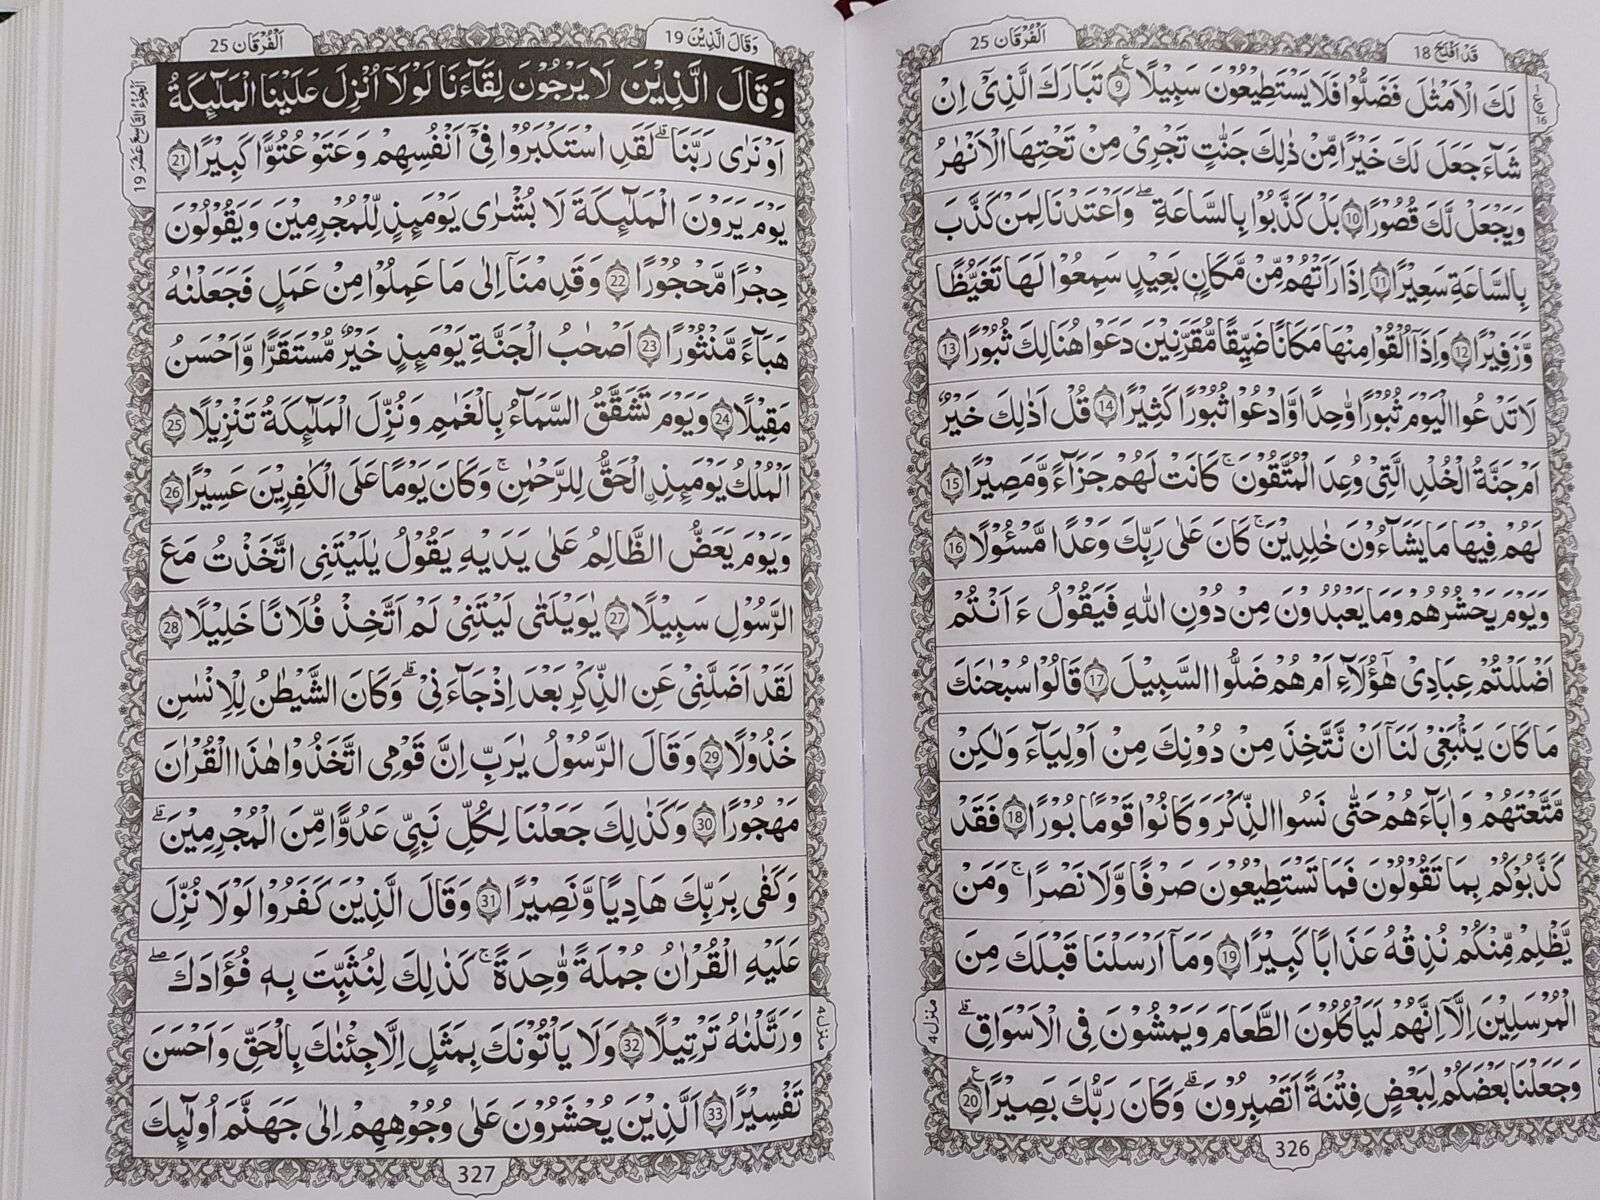 قَدْ اَفْلَحَ 18
اَلْفُرْقَان 25
لَكَ الْاَمْثَالَ فَضَلُّوْا فَلَا يَسْتَطِيْعُوْنَ سَبِيْلًا ۝9 تَبَارَكَ الَّذِىْٓ اِنْ
شَآءَ جَعَلَ لَكَ خَيْرًا مِّنْ ذٰلِكَ جَنّٰتٍ تَجْرِىْ مِنْ تَحْتِهَا الْاَنْهٰرُ
وَيَجْعَلْ لَّكَ قُصُوْرًا ۝10 بَلْ كَذَّبُوْا بِالسَّاعَةِ ۖ وَاَعْتَدْنَا لِمَنْ كَذَّبَ
بِالسَّاعَةِ سَعِيْرًا ۝11 اِذَا رَاَتْهُمْ مِّنْ مَّكَانٍۭ بَعِيْدٍ سَمِعُوْا لَهَا تَغَيُّظًا
وَّزَفِيْرًا ۝12 وَاِذَآ اُلْقُوْا مِنْهَا مَكَانًا ضَيِّقًا مُّقَرَّنِيْنَ دَعَوْا هُنَالِكَ ثُبُوْرًا ۝13
لَا تَدْعُوا الْيَوْمَ ثُبُوْرًا وَّاحِدًا وَّادْعُوْا ثُبُوْرًا كَثِيْرًا ۝14 قُلْ اَذٰلِكَ خَيْرٌ
اَمْ جَنَّةُ الْخُلْدِ الَّتِىْ وُعِدَ الْمُتَّقُوْنَ ۚ كَانَتْ لَهُمْ جَزَآءً وَّمَصِيْرًا ۝15
لَهُمْ فِيْهَا مَا يَشَآءُوْنَ خٰلِدِيْنَ ۚ كَانَ عَلٰى رَبِّكَ وَعْدًا مَّسْئُوْلًا ۝16
وَيَوْمَ يَحْشُرُهُمْ وَمَا يَعْبُدُوْنَ مِنْ دُوْنِ اللّٰهِ فَيَقُوْلُ ءَاَنْتُمْ
اَضْلَلْتُمْ عِبَادِىْ هٰٓؤُلَآءِ اَمْ هُمْ ضَلُّوا السَّبِيْلَ ۝17 قَالُوْا سُبْحٰنَكَ
مَا كَانَ يَنْۢبَغِىْ لَنَآ اَنْ نَّتَّخِذَ مِنْ دُوْنِكَ مِنْ اَوْلِيَآءَ وَلٰكِنْ
مَّتَّعْتَهُمْ وَاٰبَآءَهُمْ حَتّٰى نَسُوا الذِّكْرَ وَكَانُوْا قَوْمًۢا بُوْرًا ۝18 فَقَدْ
كَذَّبُوْكُمْ بِمَا تَقُوْلُوْنَ فَمَا تَسْتَطِيْعُوْنَ صَرْفًا وَّلَا نَصْرًا ۚ وَمَنْ
يَّظْلِمْ مِّنْكُمْ نُذِقْهُ عَذَابًا كَبِيْرًا ۝19 وَمَآ اَرْسَلْنَا قَبْلَكَ مِنَ
الْمُرْسَلِيْنَ اِلَّآ اِنَّهُمْ لَيَاْكُلُوْنَ الطَّعَامَ وَيَمْشُوْنَ فِى الْاَسْوَاقِ ۗ
وَجَعَلْنَا بَعْضَكُمْ لِبَعْضٍ فِتْنَةً اَتَصْبِرُوْنَ ۗ وَكَانَ رَبُّكَ بَصِيْرًا ۝20
منزل 4
326
وَقَالَ الَّذِيْنَ 19
اَلْفُرْقَان 25
وَقَالَ الَّذِيْنَ لَا يَرْجُوْنَ لِقَآءَنَا لَوْلَآ اُنْزِلَ عَلَيْنَا الْمَلٰٓئِكَةُ
اَوْ نَرٰى رَبَّنَا ۗ لَقَدِ اسْتَكْبَرُوْا فِىْٓ اَنْفُسِهِمْ وَعَتَوْ عُتُوًّا كَبِيْرًا ۝21
يَوْمَ يَرَوْنَ الْمَلٰٓئِكَةَ لَا بُشْرٰى يَوْمَئِذٍ لِّلْمُجْرِمِيْنَ وَيَقُوْلُوْنَ
حِجْرًا مَّحْجُوْرًا ۝22 وَقَدِمْنَآ اِلٰى مَا عَمِلُوْا مِنْ عَمَلٍ فَجَعَلْنٰهُ
هَبَآءً مَّنْثُوْرًا ۝23 اَصْحٰبُ الْجَنَّةِ يَوْمَئِذٍ خَيْرٌ مُّسْتَقَرًّا وَّاَحْسَنُ
مَقِيْلًا ۝24 وَيَوْمَ تَشَقَّقُ السَّمَآءُ بِالْغَمٰمِ وَنُزِّلَ الْمَلٰٓئِكَةُ تَنْزِيْلًا ۝25
اَلْمُلْكُ يَوْمَئِذِ ۨالْحَقُّ لِلرَّحْمٰنِ ۚ وَكَانَ يَوْمًا عَلَى الْكٰفِرِيْنَ عَسِيْرًا ۝26
وَيَوْمَ يَعَضُّ الظَّالِمُ عَلٰى يَدَيْهِ يَقُوْلُ يٰلَيْتَنِى اتَّخَذْتُ مَعَ
الرَّسُوْلِ سَبِيْلًا ۝27 يٰوَيْلَتٰى لَيْتَنِىْ لَمْ اَتَّخِذْ فُلَانًا خَلِيْلًا ۝28
لَقَدْ اَضَلَّنِىْ عَنِ الذِّكْرِ بَعْدَ اِذْ جَآءَنِىْ ۗ وَكَانَ الشَّيْطٰنُ لِلْاِنْسٰنِ
خَذُوْلًا ۝29 وَقَالَ الرَّسُوْلُ يٰرَبِّ اِنَّ قَوْمِى اتَّخَذُوْا هٰذَا الْقُرْاٰنَ
مَهْجُوْرًا ۝30 وَكَذٰلِكَ جَعَلْنَا لِكُلِّ نَبِىٍّ عَدُوًّا مِّنَ الْمُجْرِمِيْنَ ۗ
وَكَفٰى بِرَبِّكَ هَادِيًا وَّنَصِيْرًا ۝31 وَقَالَ الَّذِيْنَ كَفَرُوْا لَوْلَا نُزِّلَ
عَلَيْهِ الْقُرْاٰنُ جُمْلَةً وَّاحِدَةً ۚ كَذٰلِكَ لِنُثَبِّتَ بِهٖ فُؤَادَكَ ۖ
وَرَتَّلْنٰهُ تَرْتِيْلًا ۝32 وَلَا يَاْتُوْنَكَ بِمَثَلٍ اِلَّا جِئْنٰكَ بِالْحَقِّ وَاَحْسَنَ
تَفْسِيْرًا ۝33 اَلَّذِيْنَ يُحْشَرُوْنَ عَلٰى وُجُوْهِهِمْ اِلٰى جَهَنَّمَ اُولٰٓئِكَ
الجزء التاسع عشر 19
منزل 4
327